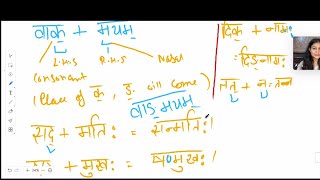 वाक + मयम
L.H.S R.H.S Nasal
Consonant
(Place of क, ङ will come)
वाङमयम
सद + मतिः = सन्मतिः।
+ मुखः = षण्मुखः।
दिक + नागः
= दिङनागः
तत् + नः